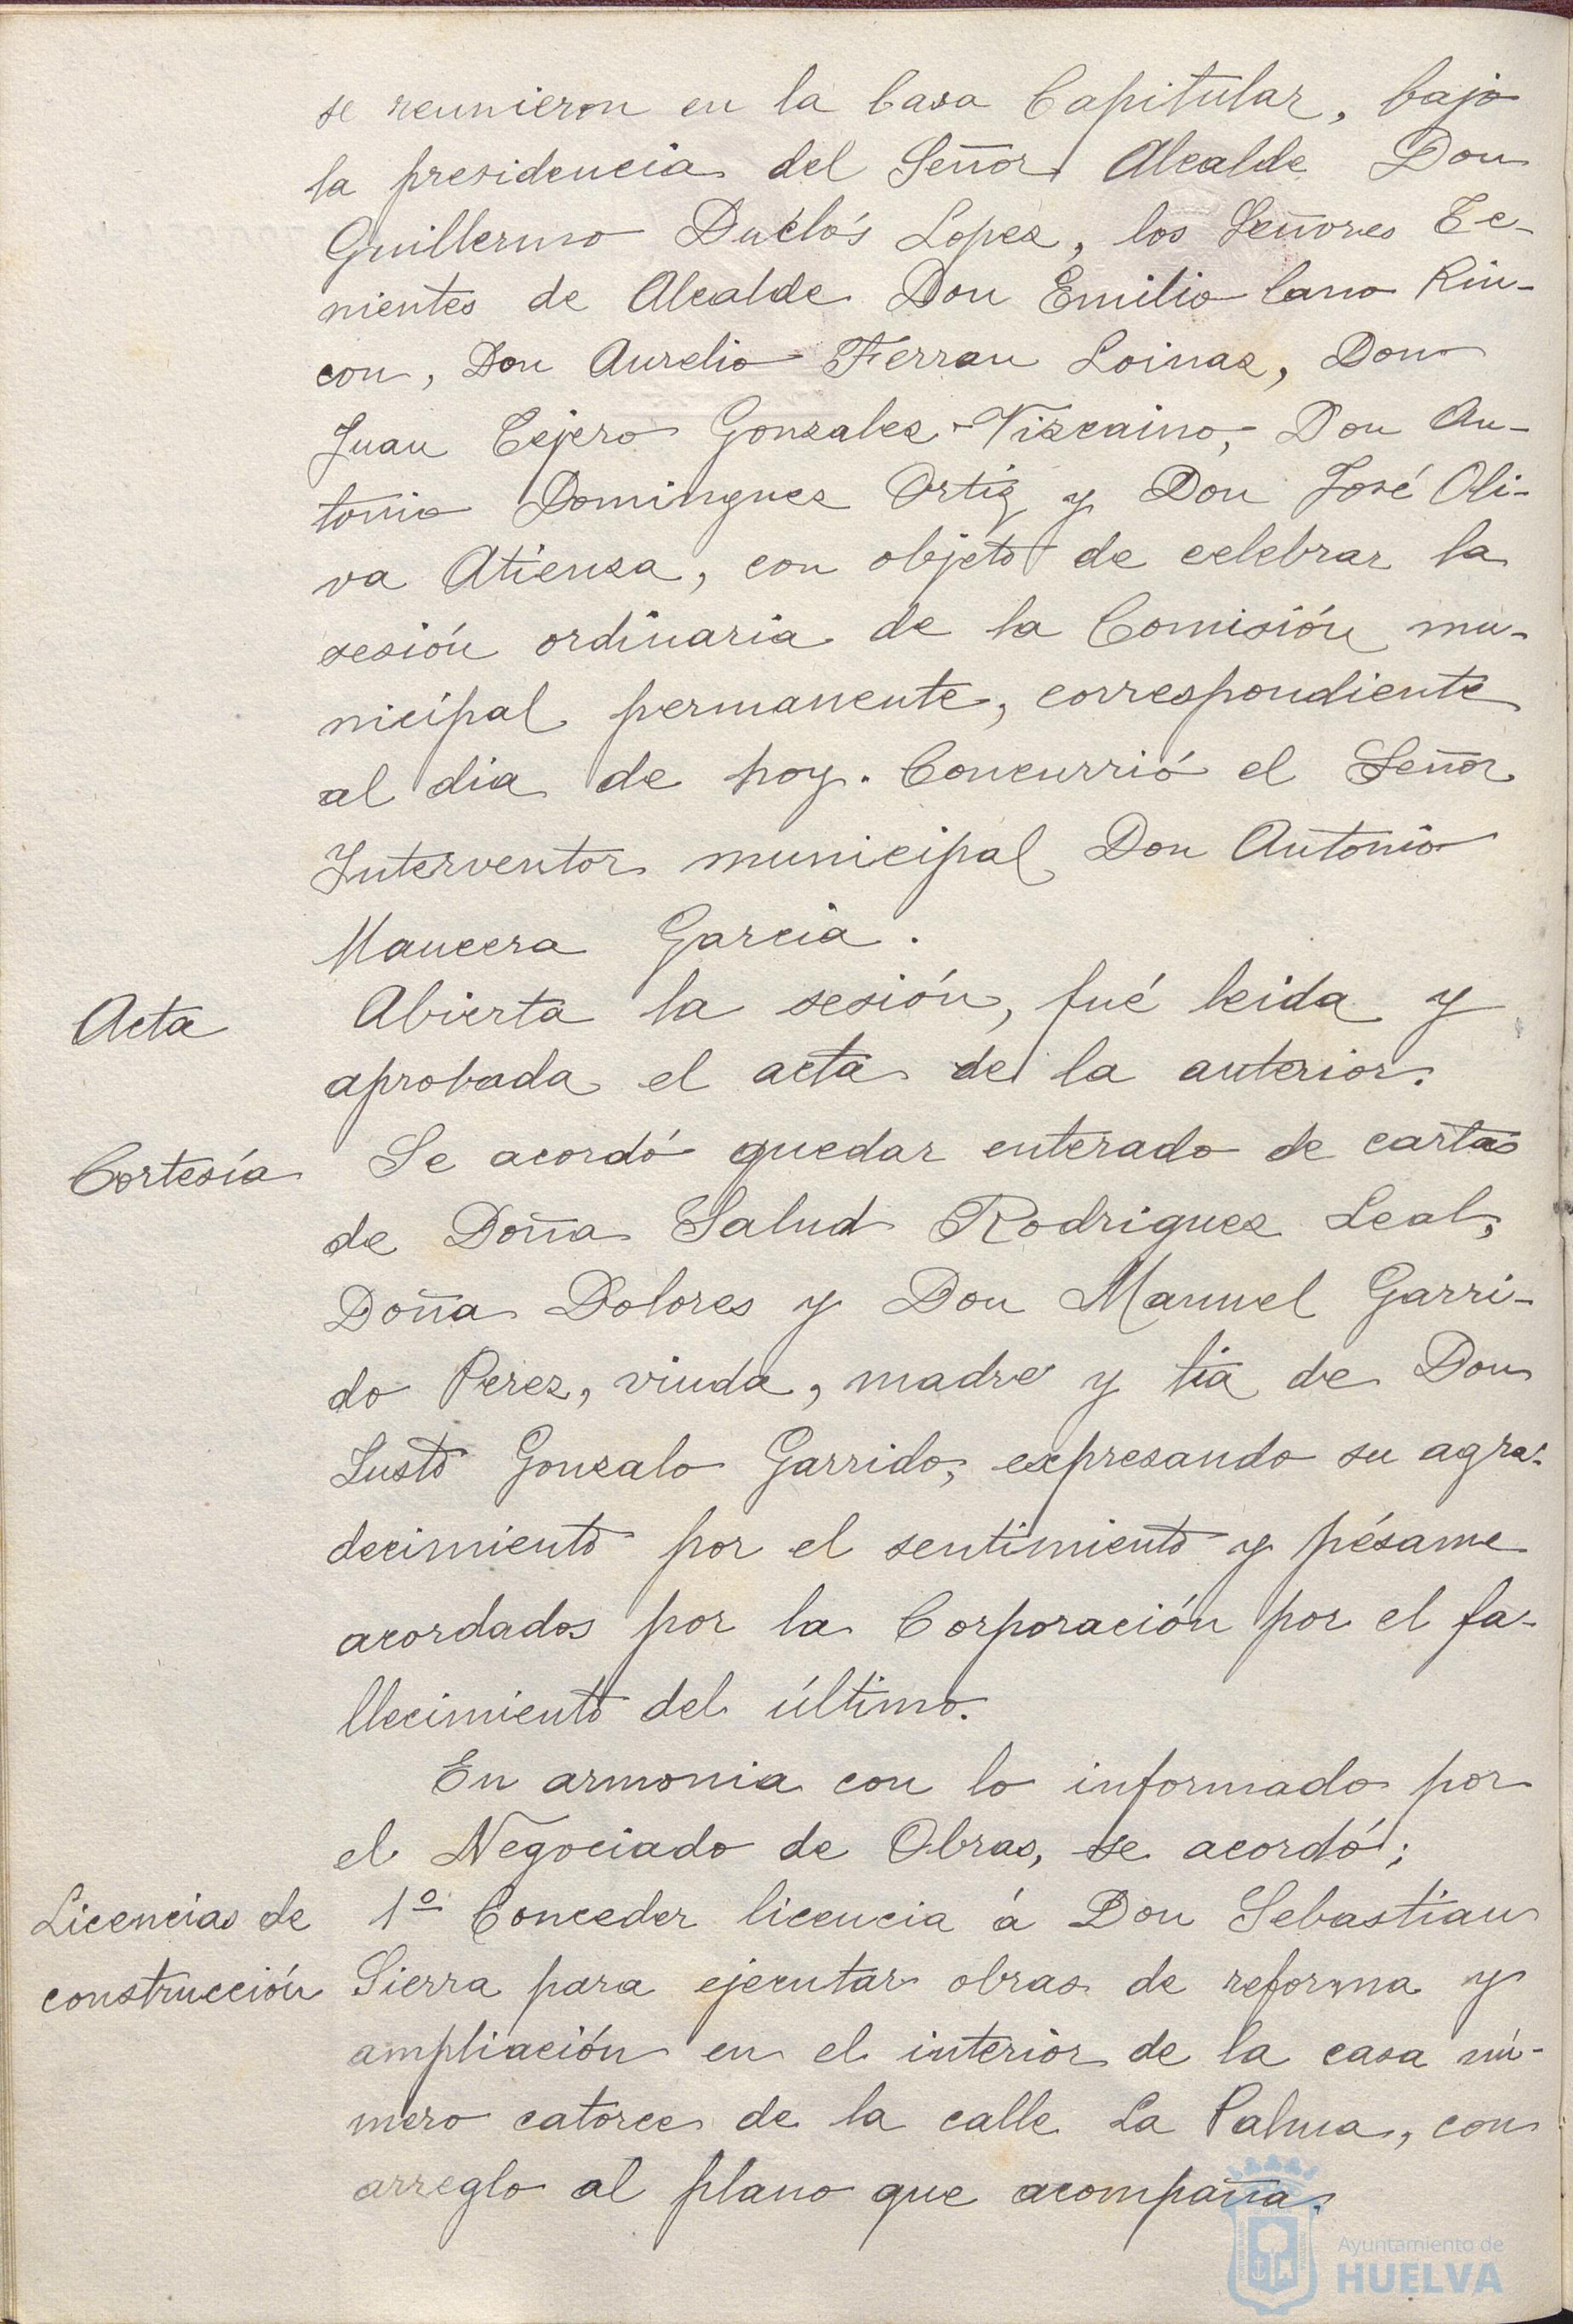 se reunieron en la Casa Capitular, bajo
la presidencia del Señor Alcalde Don
Guillermo Duclós Lopez, los Señores Te-
nientes de Alcalde Don Emilio Cano Rin-
con, Don Aurelio Ferran Loinaz, Don
Juan Tejero Gonzalez-Vizcaino, Don An-
tonio Dominguez Ortiz y Don José Oli-
va Atienza, con objeto de celebrar la
sesión ordinaria de la Comisión mu-
nicipal permanente, correspondiente
al dia de hoy. Concurrió el Señor
Interventor municipal Don Antonio
Mancera Garcia.
Acta
Abierta la sesión, fué leida y
aprobada el acta de la anterior.
Cortesía
Se acordó quedar enterado de cartas
de Doña Salud Rodriguez Leal,
Doña Dolores y Don Manuel Garri-
do Perez, viuda, madre y tia de Don
Justo Gonzalo Garrido, expresando su agra-
decimiento por el sentimiento y pésame
acordados por la Corporación por el fa-
llecimiento del último.
En armonia con lo informado por
el Negociado de Obras, se acordó:
Licencias de
construcción
1º Conceder licencia á Don Sebastian
Sierra para ejecutar obras de reforma y
ampliación en el interior de la casa nú-
mero catorce de la calle La Palma, con
arreglo al plano que acompaña.
Ayuntamiento de
HUELVA